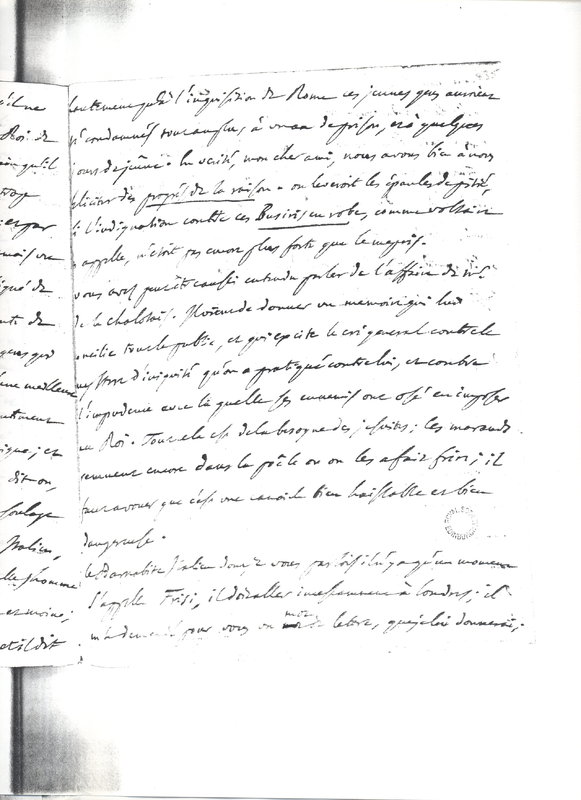 'il ne
Roi de
qu'il
et par
mais un
de
de
meilleure
dit on,
foulage
Italien,
et moine;
et il dit
hautement qu'à l'inquisition de Rome ces jeunes gens auroient
été condamnés tout au plus, à un an de prison, et à quelques
jours de jeûne. En verité, mon cher ami, nous avons bien à nous
féliciter des progrès de la raison. on leveroit les épaules de pitié,
si l'indignation contre ces Busiris en robe, comme voltaire
les appelle, n'étoit pas encore plus forte que le mepris.
vous avez peut etre aussi entendu parler de l'affaire de M.
de la chalotais. Il vient de donner un memoire qui lui
concilie tout le public, et qui excite le cri general contre le
d'iniquité qu'on a pratiqué contre lui, et contre
l'impudence avec la quelle ses ennemis ont osé en imposer
au Roi. Tout cela est de la besogne des jesuites; les marauds
remuent encore dans la poële ou on les a fait frire; il
faut avouer que c'est une canaille bien haissable et bien
dangereuse.
le Barnabite Italien dont je vous parlois il n'y a qu'un moment
s'appelle Frisi, il doit aller incessamment à Londres; il
m'a demandé pour vous un mot de lettre, que je lui donnerai;